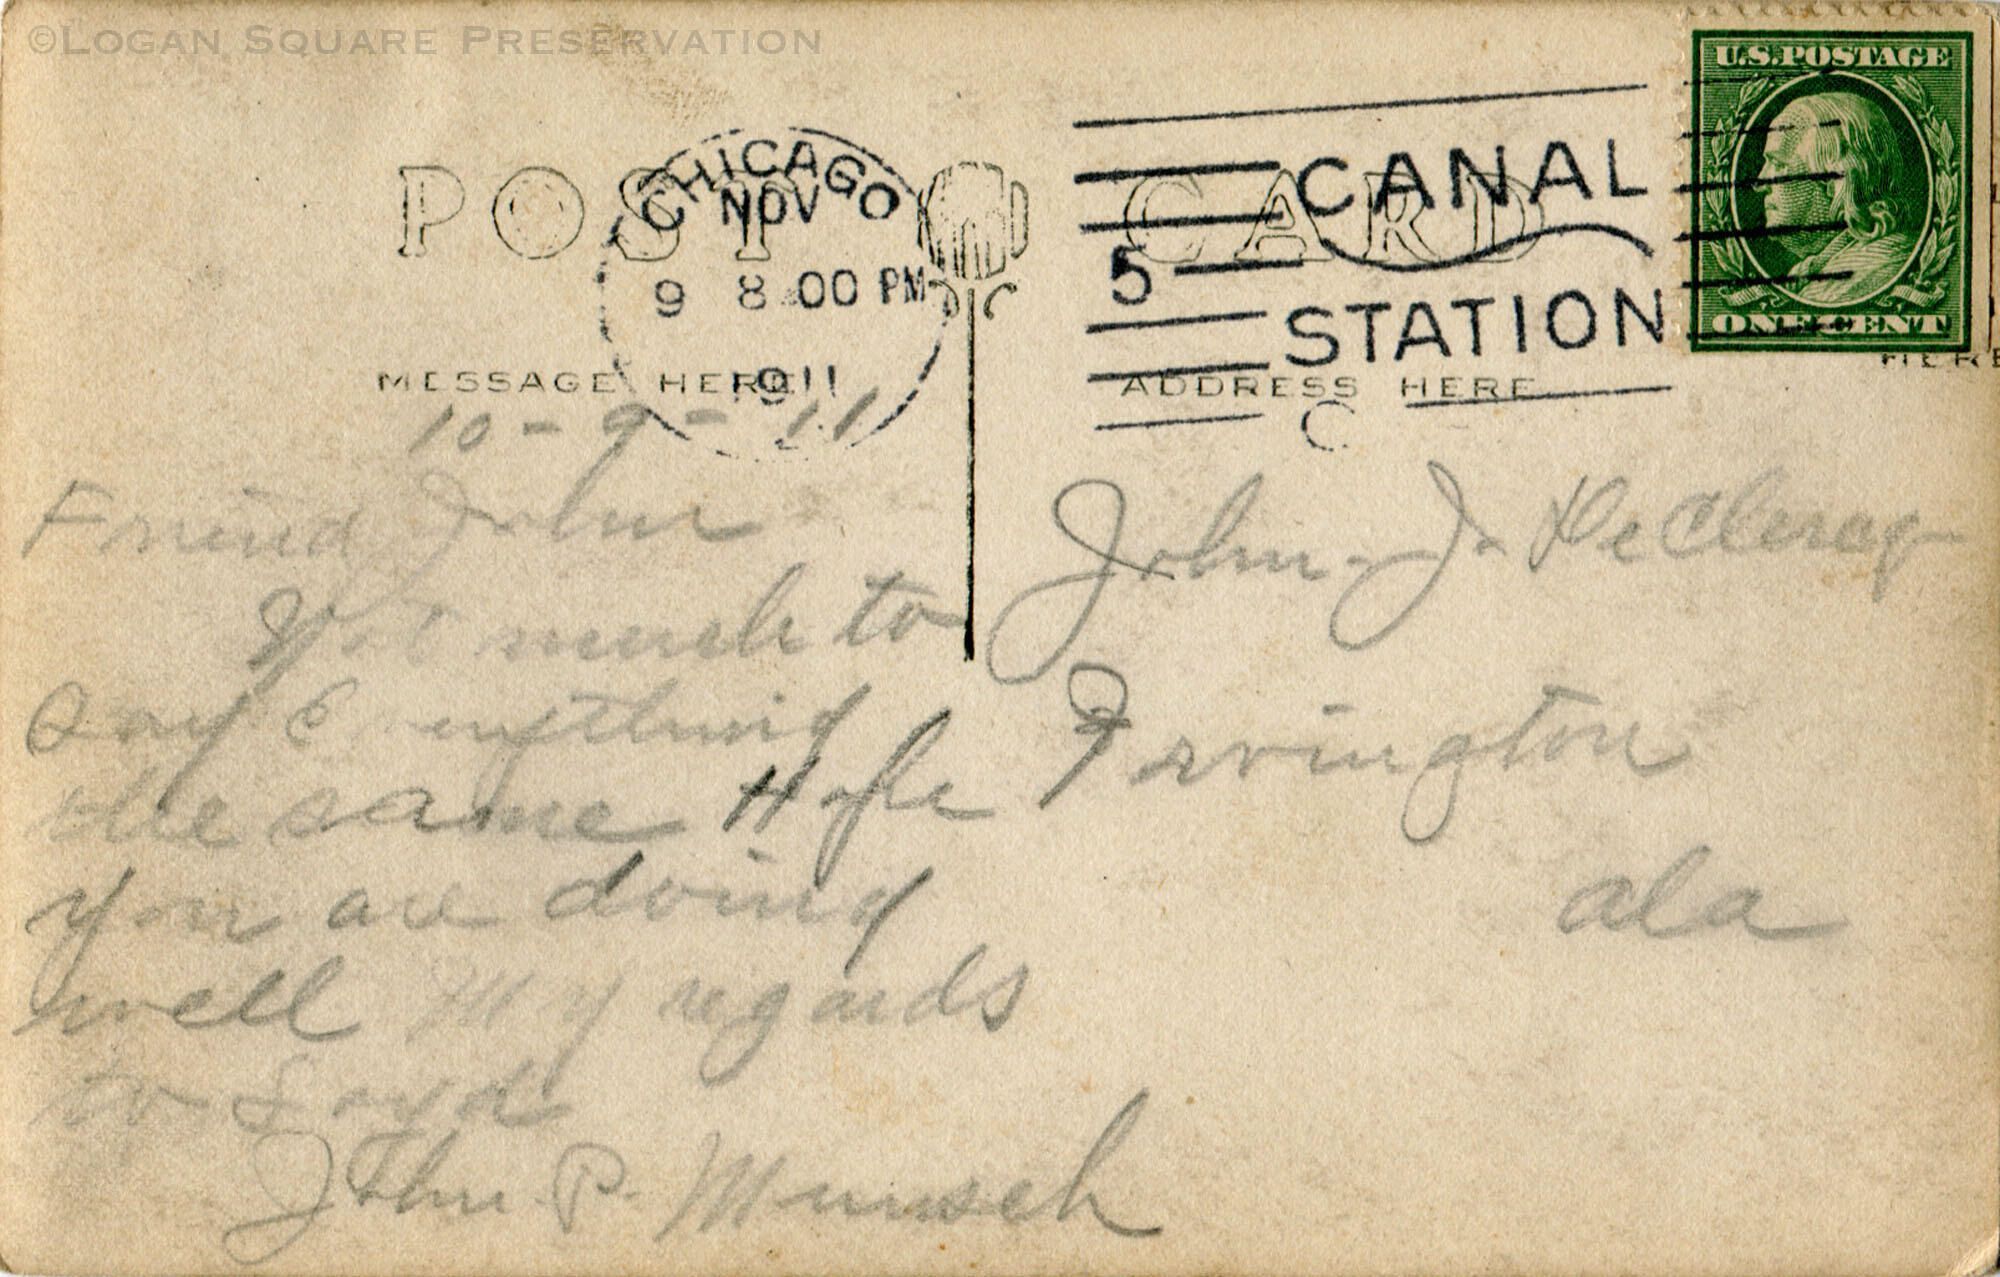 ©LOGAN SQUARE PRESERVATION
U.S. POSTAGE
ONE CENT
POST CARD
CHICAGO
NOV
9 8 00 PM
1911
CANAL
5
STATION
C
MESSAGE HERE
ADDRESS HERE
HERE
10-9-11
Friend John
Not much to
Say Everything
the same Hope
you are doing
well My regards
to
John P. Munsch
John. J. DeClercq
Irvington
ala